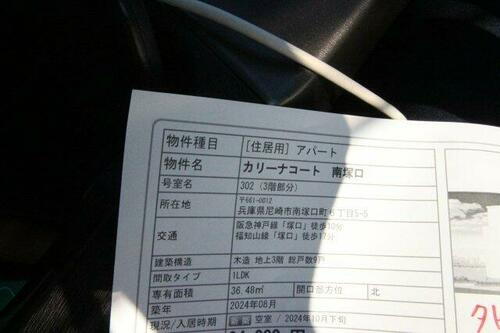 物件種目 [住居用] アパート
物件名 カリーナコート 南塚口
号室名 302 (3階部分)
所在地 〒661-0012
兵庫県尼崎市南塚口町6丁目5-5
交通 阪急神戸線「塚口」徒歩10分
福知山線「塚口」徒歩17分
建築構造 木造 地上3階 総戸数9戸
間取タイプ 1LDK
専有面積 36.48㎡ 開口部方位 北
築年 2024年08月
現況/入居時期 空室 / 2024年10月下旬